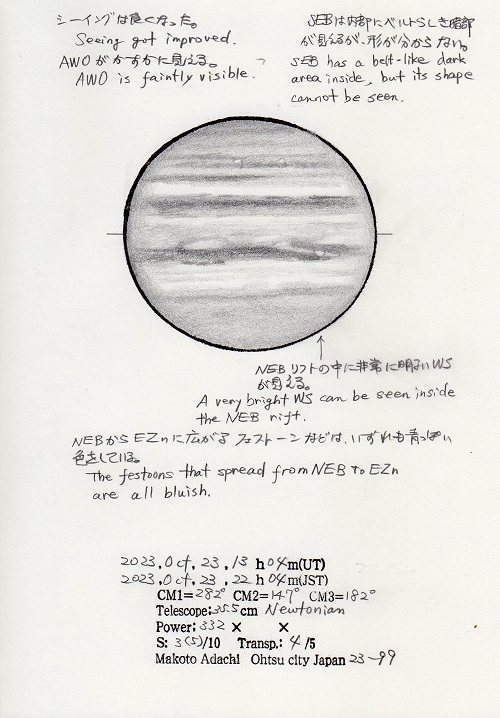 シーイングは良くなった。
Seeing got improved.
AWOがかすかに見える。
AWO is faintly visible.
SEBは内部にベルトらしき暗部
が見えるが、形が分からない。
SEB has a belt-like dark
area inside, but its shape
cannot be seen.
NEBリフトの中に非常に明るいWS
が見える。
A very bright WS can be seen inside
the NEB rift.
NEBからEZnに広がるフェストーンなどは、いずれも青っぽい
色をしている。
The festoons that spread from NEB to EZn
are all bluish.
2023,Oct,23,13 h 04m(UT)
2023,Oct,23,22 h 04m(JST)
CM1=282° CM2=147° CM3=182°
Telescope:35.5cm Newtonian
Power:332 × ×
S: 3(5)/10 Transp.: 4/5
Makoto Adachi Ohtsu city Japan 23-99